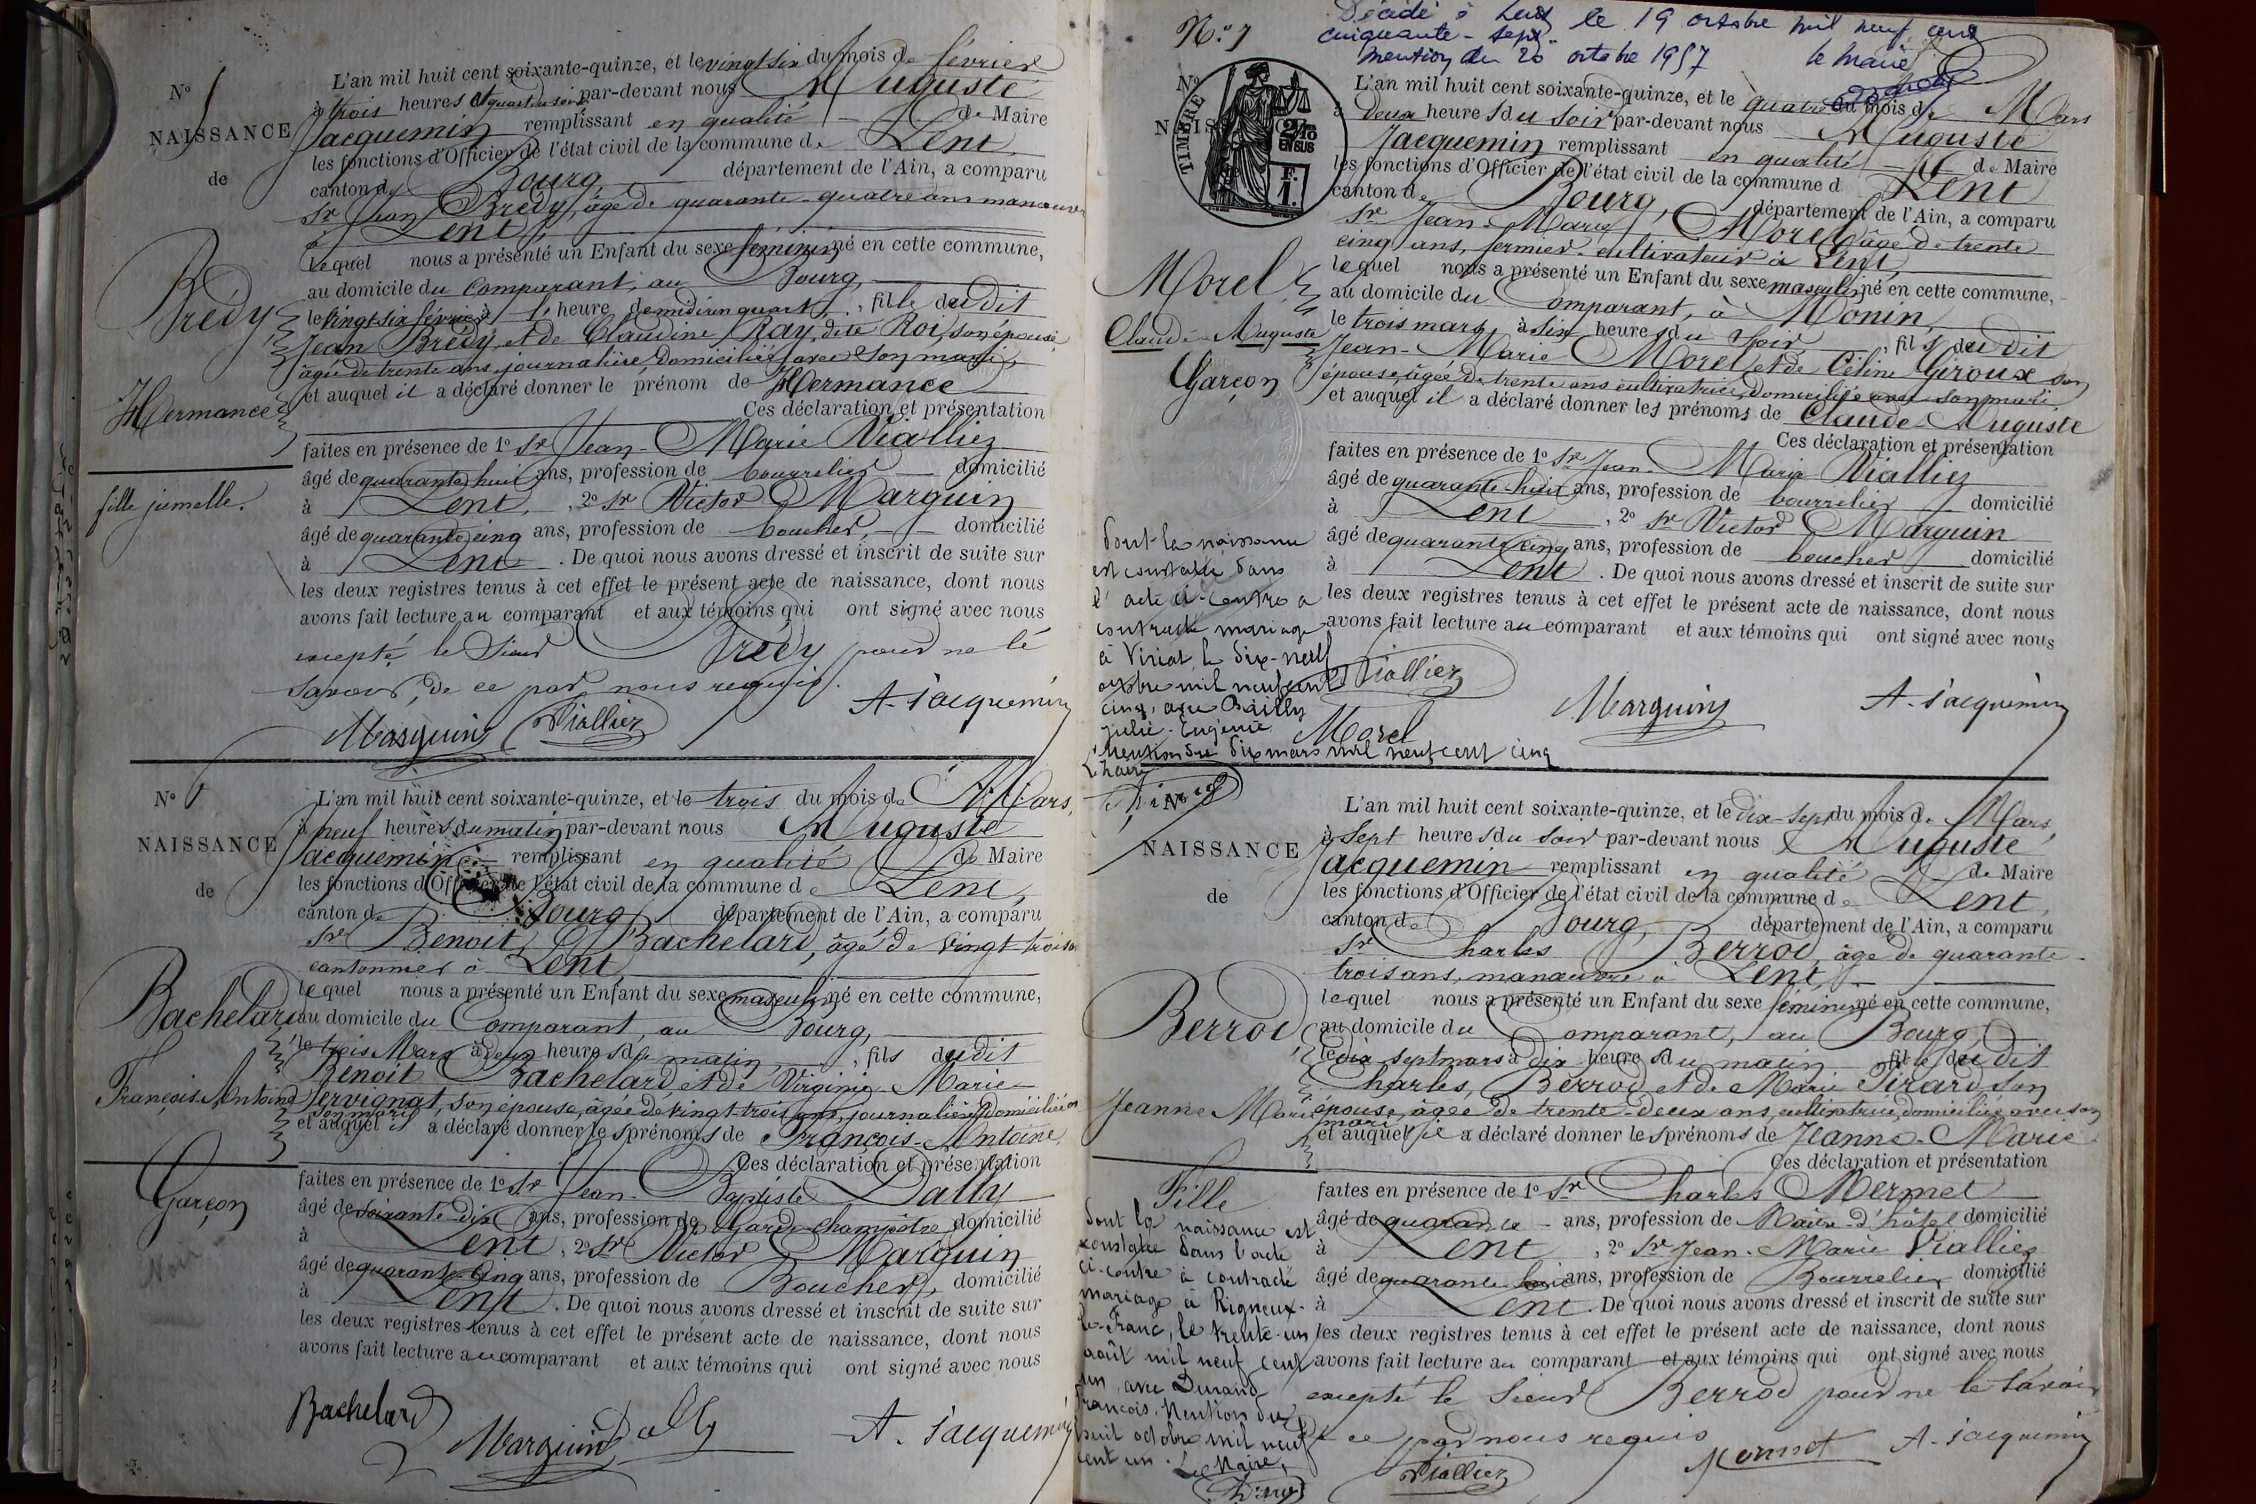 N° 5
NAISSANCE
de
Brédy,
Hermance
fille jumelle.
L'an mil huit cent soixante-quinze, et le vingt six du mois de février
à trois heures et quart du soir par-devant nous Auguste
Jacquemin remplissant en qualité de Maire
les fonctions d'Officier de l'état civil de la commune de Lent
canton de Bourg, département de l'Ain, a comparu
Sr Jean Brédy, âgé de quarante-quatre ans manœuvre
à Lent,
lequel nous a présenté un Enfant du sexe féminin né en cette commune,
au domicile du Comparant, au Bourg,
le vingt six février à l' heure de midi un quart, fille du dit
Jean Brédy, et de Claudine Ray, dite Roi, son épouse
âgée de trente ans, journalière, domiciliée avec son mari,
et auquel il a déclaré donner le prénom de Hermance
Ces déclaration et présentation
faites en présence de 1° Sr Jean-Marie Viallier
âgé de quarante huit ans, profession de bourrelier domicilié
à Lent, 2° Sr Victor Marguin
âgé de quarante cinq ans, profession de boucher, domicilié
à Lent. De quoi nous avons dressé et inscrit de suite sur
les deux registres tenus à cet effet le présent acte de naissance, dont nous
avons fait lecture au comparant et aux témoins qui ont signé avec nous
excepté le Sieur Brédy pour ne le
savoir, de ce par nous requis.
A. Jacquemin
Marguin Viallier
N° 6
NAISSANCE
de
Bachelard
François-Antoine
Garçon
L'an mil huit cent soixante-quinze, et le trois du mois de Mars,
à neuf heures du matin par-devant nous Auguste
Jacquemin remplissant en qualité de Maire
les fonctions d'Officier de l'état civil de la commune de Lent,
canton de Bourg, département de l'Ain, a comparu
Sr Benoit Bachelard, âgé de vingt-trois ans
cantonnier à Lent
lequel nous a présenté un Enfant du sexe masculin né en cette commune,
au domicile du Comparant, au Bourg,
le trois Mars à deux heures du matin, fils du dit
Benoit Bachelard, et de Virginie Marie
Servignat, son épouse, âgée de vingt-trois ans, journalière, domiciliée avec
son mari
et auquel il a déclaré donner les prénoms de François-Antoine.
Ces déclaration et présentation
faites en présence de 1° Sr Jean-Baptiste Dally
âgé de soixante-dix ans, profession de Garde-champêtre domicilié
à Lent, 2° Sr Victor Marguin
âgé de quarante-cinq ans, profession de Boucher, domicilié
à Lent. De quoi nous avons dressé et inscrit de suite sur
les deux registres tenus à cet effet le présent acte de naissance, dont nous
avons fait lecture au comparant et aux témoins qui ont signé avec nous
Bachelard
Marguin Dally A. Jacquemin
N° 7
Décédé à Lent le 19 octobre mil neuf cent
cinquante-sept
mention du 20 octobre 1957 le Maire
N°
TIMBRE
2/10 EN SUS
F. 1.
Morel
Claude-Auguste
Garçon
L'an mil huit cent soixante-quinze, et le quatre du mois de Mars
à deux heures du soir par-devant nous Auguste
Jacquemin remplissant en qualité de Maire
les fonctions d'Officier de l'état civil de la commune d Lent
canton de Bourg, département de l'Ain, a comparu
Sr Jean-Marie Morel, âgé de trente
cinq ans, fermier-cultivateur à Lent,
lequel nous a présenté un Enfant du sexe masculin né en cette commune,
au domicile du Comparant, à Monin,
le trois mars à six heures du soir, fils du dit
Jean-Marie Morel et de Céline Giroux son
épouse, âgée de trente ans cultivatrice, domiciliée avec son mari
et auquel il a déclaré donner les prénoms de Claude-Auguste
Ces déclaration et présentation
faites en présence de 1° Sr Jean-Marie Viallier
âgé de quarante-huit ans, profession de bourrelier domicilié
à Lent, 2° Sr Victor Marguin
âgé de quarante cinq ans, profession de boucher domicilié
à Lent. De quoi nous avons dressé et inscrit de suite sur
les deux registres tenus à cet effet le présent acte de naissance, dont nous
avons fait lecture au comparant et aux témoins qui ont signé avec nous
Viallier Marguin A. Jacquemin
Morel
Dont la naissance
est constatée dans
l'acte ci-contre a
contracté mariage
à Viriat, le dix-neuf
octobre mil neuf cent
cinq, avec Bailly
Julie-Eugénie
Mention du dix mars mil neuf cent cinq
Le Maire
N° 8
NAISSANCE
de
Berrod,
Jeanne Marie
Fille
L'an mil huit cent soixante-quinze, et le dix-sept du mois de Mars,
à sept heures du soir par-devant nous Auguste
Jacquemin remplissant en qualité de Maire
les fonctions d'Officier de l'état civil de la commune de Lent,
canton de Bourg, département de l'Ain, a comparu
Sr Charles Berrod, âgé de quarante-
trois ans, manœuvre à Lent,
lequel nous a présenté un Enfant du sexe féminin né en cette commune,
au domicile du Comparant, au Bourg,
le dix sept mars à dix heures du matin, fille du dit
Charles Berrod et de Marie Pirard, son
épouse, âgée de trente-deux ans, cultivatrice, domiciliée avec son
mari
et auquel il a déclaré donner les prénoms de Jeanne-Marie
Ces déclaration et présentation
faites en présence de 1° Sr Charles Mermet
âgé de quarante ans, profession de Maître-d'hôtel domicilié
à Lent, 2° Sr Jean-Marie Viallier
âgé de quarante huit ans, profession de Bourrelier domicilié
à Lent. De quoi nous avons dressé et inscrit de suite sur
les deux registres tenus à cet effet le présent acte de naissance, dont nous
avons fait lecture au comparant et aux témoins qui ont signé avec nous
excepté le Sieur Berrod pour ne le savoir
de ce par nous requis
Viallier Mermet A. Jacquemin
Dont la naissance est
constatée dans l'acte
ci-contre a contracté
mariage à Rigneux-
le-Franc, le trente-un
août mil neuf cent
un, avec Durand
François. Mention du
huit octobre mil neuf
cent un. Le Maire,